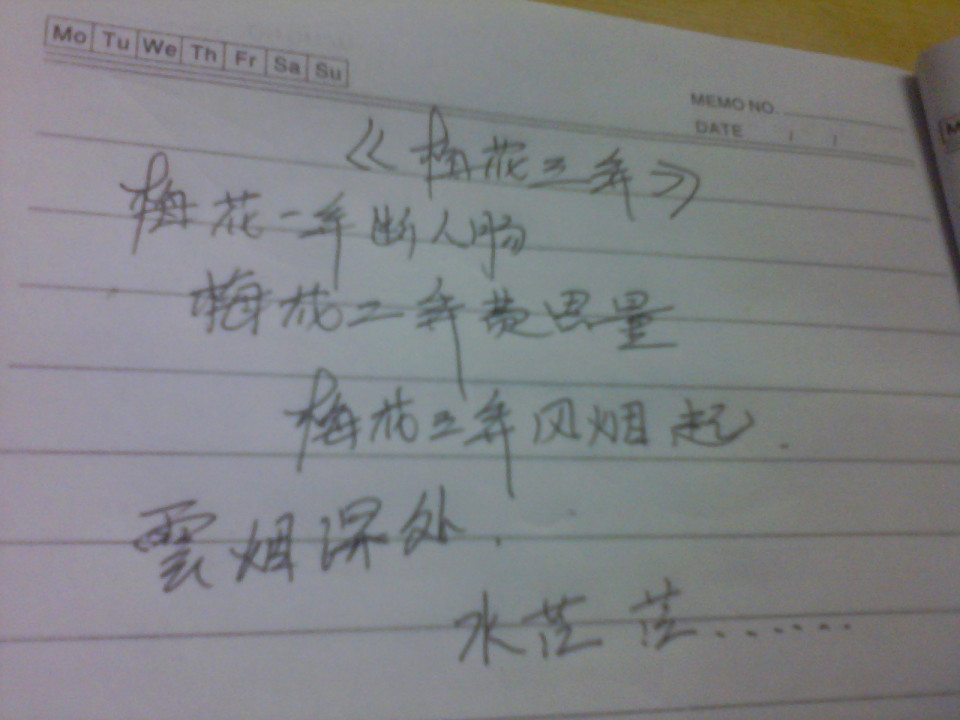 Mo Tu We Th Fr Sa Su
MEMO NO.
DATE / /
《梅花三年》
梅花一年断人肠
梅花二年费思量
梅花三年风烟起.
雲烟深处.
水茫茫......